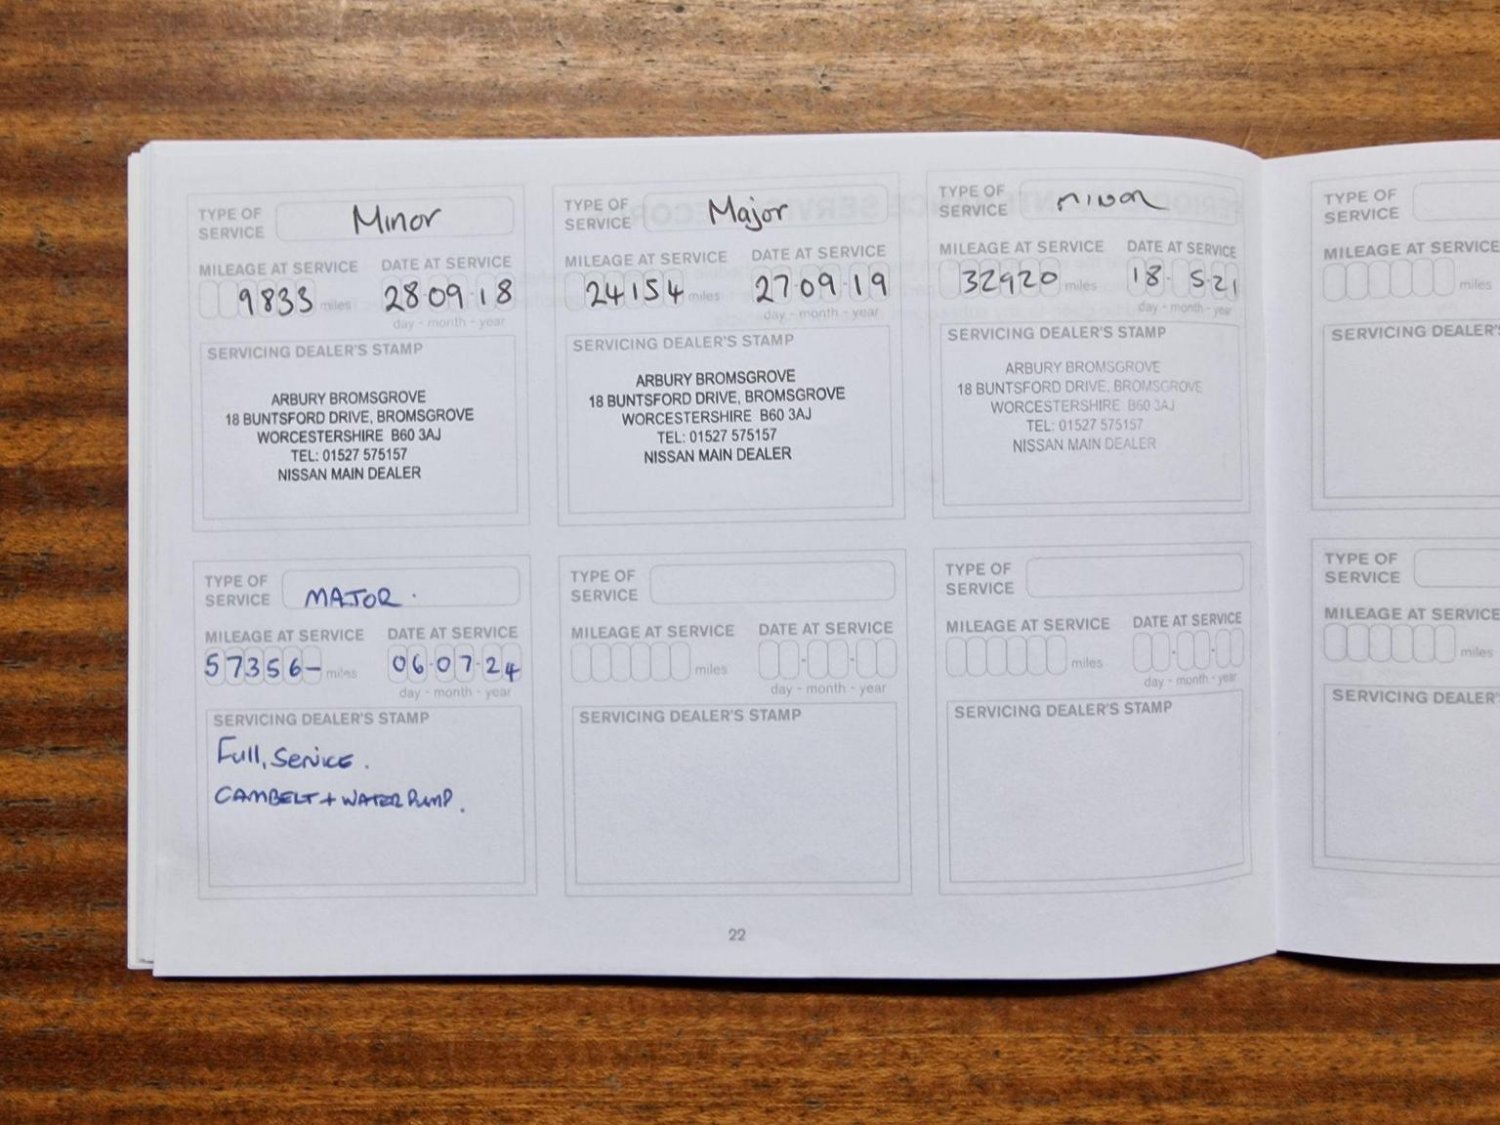 TYPE OF SERVICE Minor
MILEAGE AT SERVICE DATE AT SERVICE
9833 miles 28·09·18
day - month - year
SERVICING DEALER'S STAMP
ARBURY BROMSGROVE
18 BUNTSFORD DRIVE, BROMSGROVE
WORCESTERSHIRE B60 3AJ
TEL: 01527 575157
NISSAN MAIN DEALER
TYPE OF SERVICE Major
MILEAGE AT SERVICE DATE AT SERVICE
24154 miles 27·09·19
day - month - year
SERVICING DEALER'S STAMP
ARBURY BROMSGROVE
18 BUNTSFORD DRIVE, BROMSGROVE
WORCESTERSHIRE B60 3AJ
TEL: 01527 575157
NISSAN MAIN DEALER
TYPE OF SERVICE
MILEAGE AT SERVICE DATE AT SERVICE
32920 miles 18·5·21
day - month - year
SERVICING DEALER'S STAMP
ARBURY BROMSGROVE
18 BUNTSFORD DRIVE, BROMSGROVE
WORCESTERSHIRE B60 3AJ
TEL: 01527 575157
NISSAN MAIN DEALER
TYPE OF SERVICE MAJOR.
MILEAGE AT SERVICE DATE AT SERVICE
57356- miles 06·07·24
day - month - year
SERVICING DEALER'S STAMP
Full, Service.
CAMBELT + WATER PUMP.
TYPE OF SERVICE
MILEAGE AT SERVICE DATE AT SERVICE
miles
day - month - year
SERVICING DEALER'S STAMP
TYPE OF SERVICE
MILEAGE AT SERVICE DATE AT SERVICE
miles
day - month - year
SERVICING DEALER'S STAMP
22
TYPE OF SERVICE
MILEAGE AT SERVICE
miles
SERVICING DEALER'S
TYPE OF SERVICE
MILEAGE AT SERVICE
miles
SERVICING DEALER'S